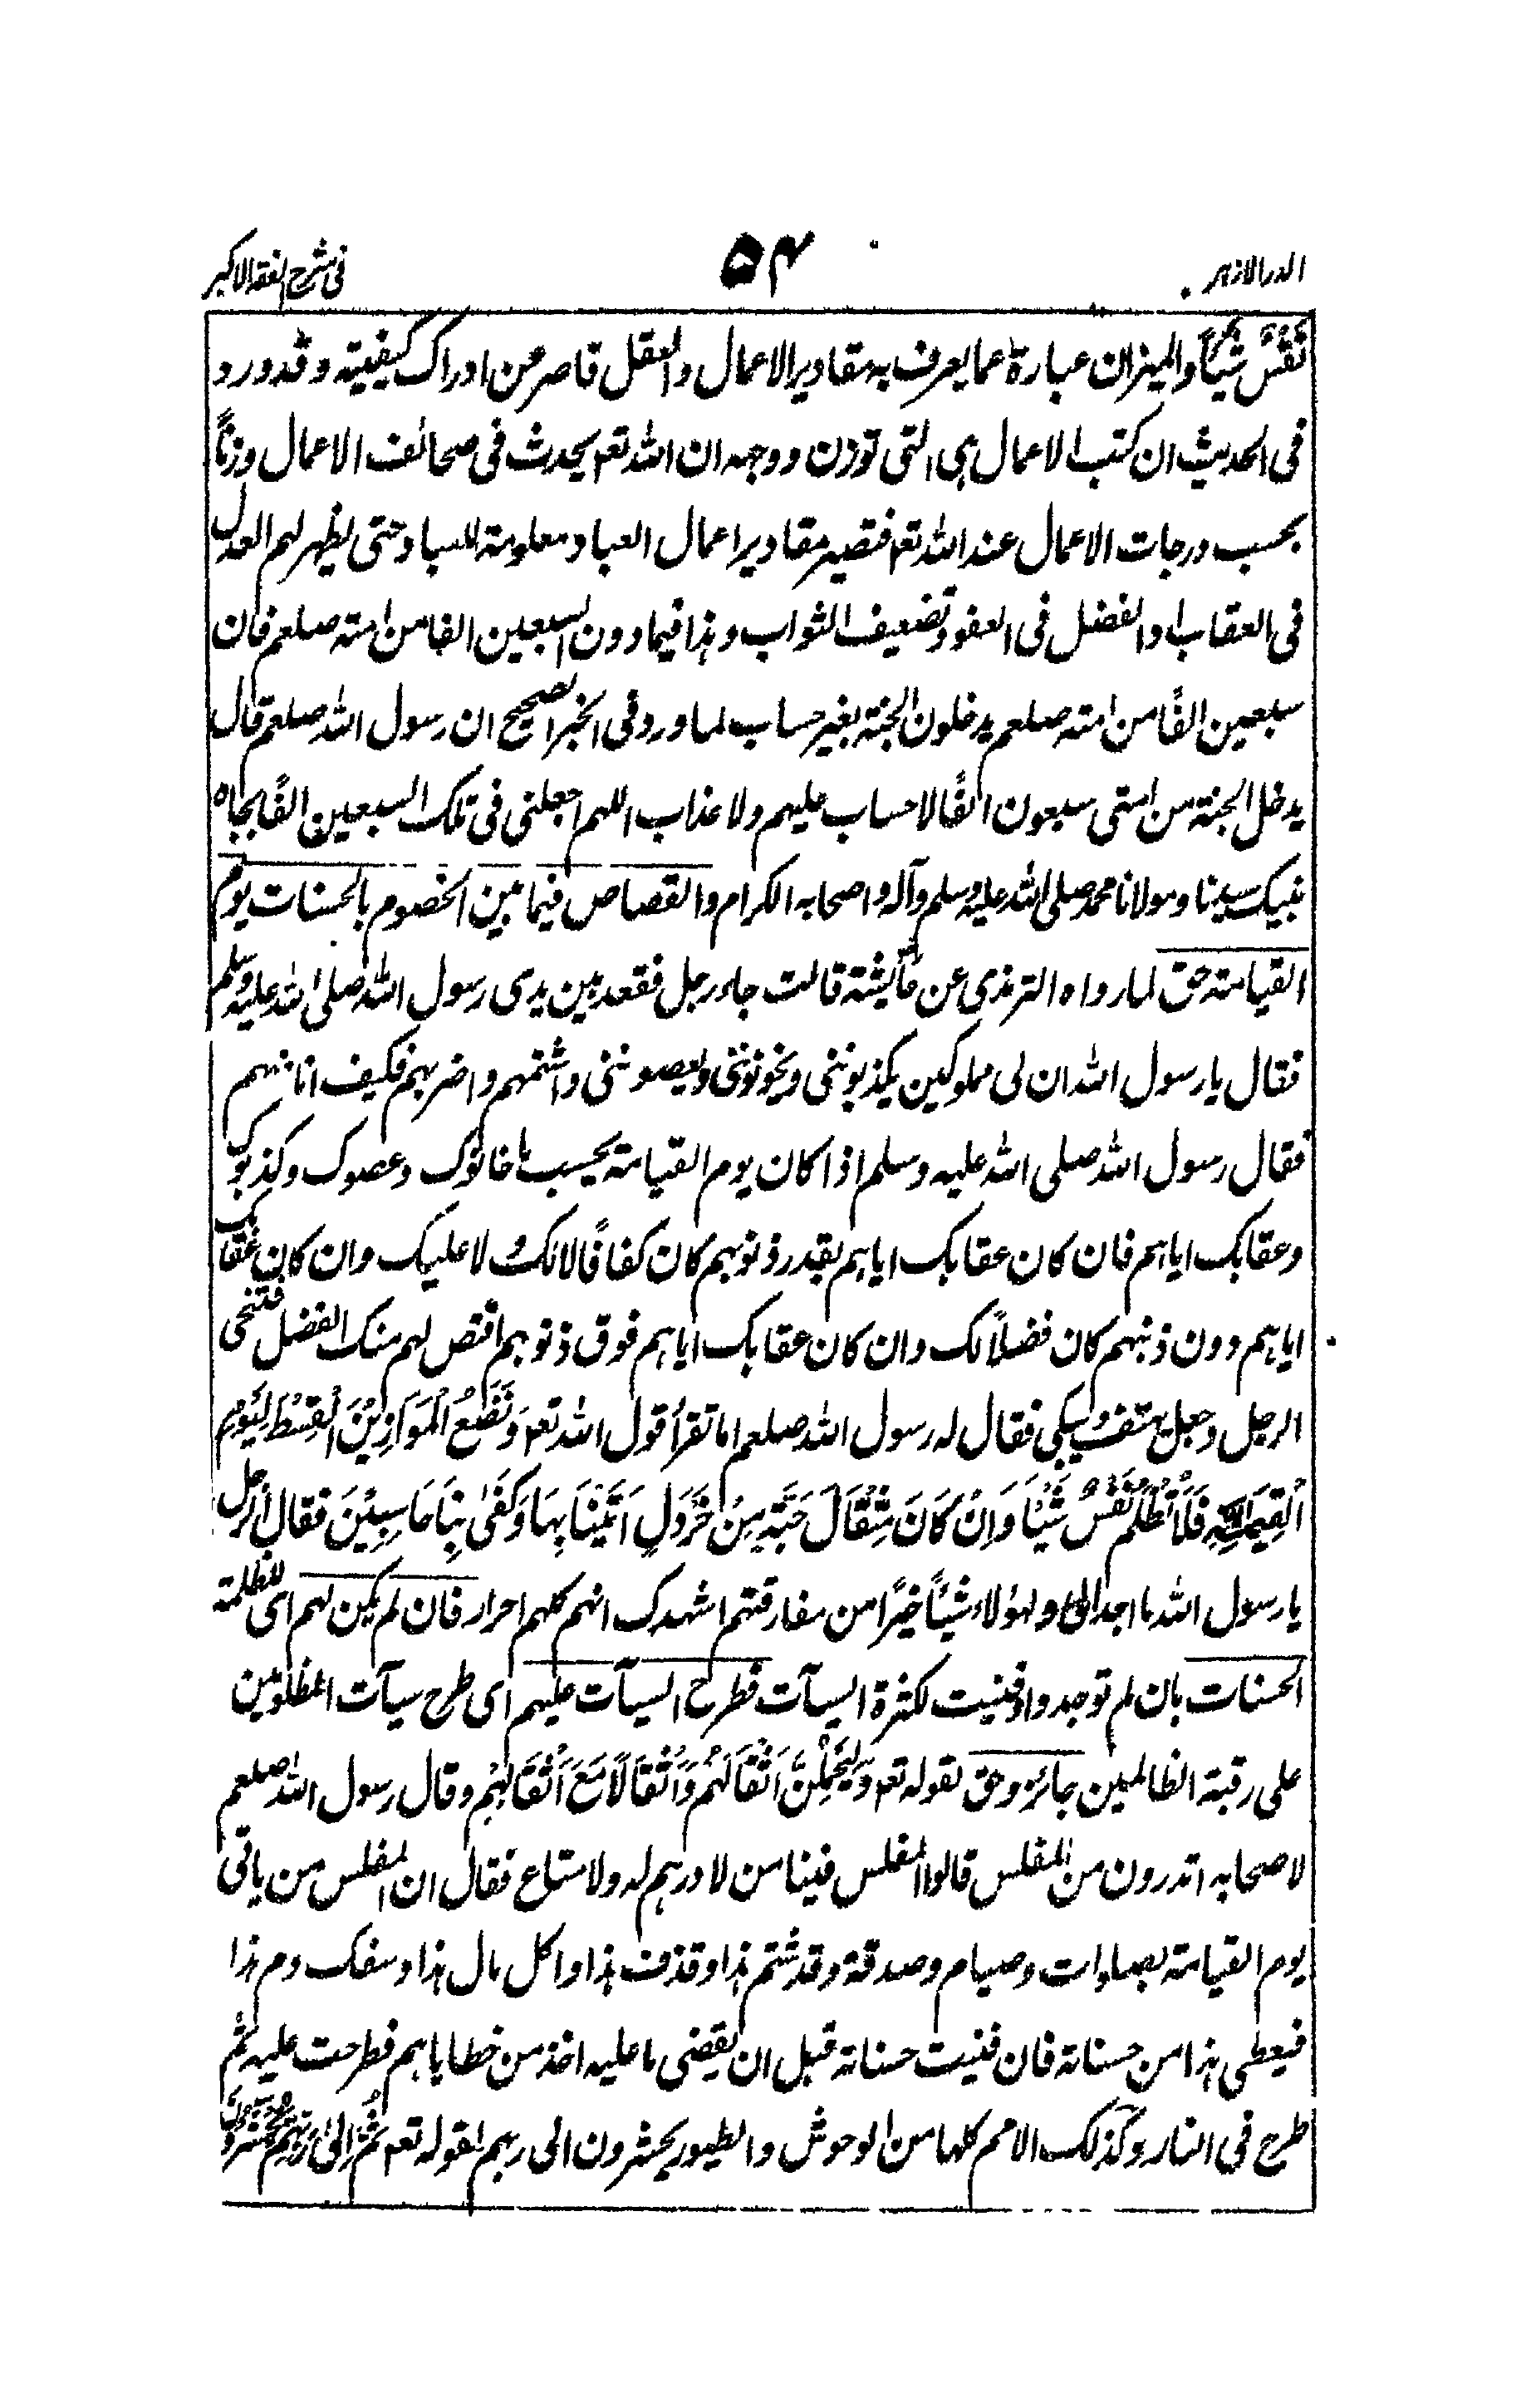 الدر الازهر ٥٤ فى شرح الفقه الاكبر
نَفْسٌ شَيْئًا والميزان عبارة عما يعرف به مقادير الاعمال والعقل قاصر عن ادراك كيفيته وقد ورد
فى الحديث ان كتب الاعمال هى التى توزن ووجهه ان الله تعم يحدث فى صحائف الاعمال وزنًا
بحسب درجات الاعمال عند الله تعم فتصير مقادير اعمال العباد معلومة للعباد حتى يظهر لهم العدل
فى العقاب او الفضل فى العفو وتضعيف الثواب وهذا فيما دون السبعين الفا من امته صلعم فان
سبعين الفًا من امته صلعم يدخلون الجنة بغير حساب لما ورد فى الخبر الصحيح ان رسول الله صلعم قال
يدخل الجنة من امتى سبعون الفًا لا حساب عليهم ولا عذاب اللهم اجعلنى فى تلك السبعين الفًا بجاه
نبيك سيدنا ومولانا محمد صلى الله عليه وسلم وآله واصحابه الكرام والقصاص فيما بين الخصوم بالحسنات يوم
القيامة حق لما رواه الترمذى عن عائشة قالت جاء رجل فقعد بين يدى رسول الله صلى الله عليه وسلم
فقال يا رسول الله ان لى مملوكين يكذبوننى ويخونوننى ويعصوننى واشتمهم واضربهم فكيف انا منهم
فقال رسول الله صلى الله عليه وسلم اذا كان يوم القيامة يحسب ما خانوك وعصوك وكذبوك
وعقابك اياهم فان كان عقابك اياهم بقدر ذنوبهم كان كفافًا لا لك ولا عليك وان كان عقابك
اياهم دون ذنبهم كان فضلًا لك وان كان عقابك اياهم فوق ذنوبهم اقتص لهم منك الفضل فتنحى
الرجل وجعل يهتف ويبكى فقال له رسول الله صلعم اما تقرأ قول الله تعم وَنَضَعُ الْمَوَازِيْنَ الْقِسْطَ لِيَوْمِ
الْقِيٰمَةِ فَلَا تُظْلَمُ نَفْسٌ شَيْئًا وَاِنْ كَانَ مِثْقَالَ حَبَّةٍ مِنْ خَرْدَلٍ اَتَيْنَا بِهَا وَكَفٰى بِنَا حَاسِبِيْنَ فقال الرجل
يا رسول الله ما اجد لى ولهؤلاء شيئًا خيرًا من مفارقتهم اشهدك انهم كلهم احرار فان لم يكن لهم اى للظلمة
الحسنات بان لم توجد وافنيت لكثرة السيآت فطرح السيآت عليهم اى طرح سيآت المظلومين
على رقبة الظالمين جائز وحق لقوله تعم وَلَيَحْمِلُنَّ اَثْقَالَهُمْ وَاَثْقَالًا مَعَ اَثْقَالِهِمْ وقال رسول الله صلعم
لاصحابه اتدرون من المفلس قالوا المفلس فينا من لا درهم له ولا متاع فقال ان المفلس من ياتى
يوم القيامة بصلوات وصيام وصدقة وقد شتم هذا وقذف هذا واكل مال هذا وسفك دم هذا
فيعطى هذا من حسناته فان فنيت حسناته قبل ان يقضى ما عليه اخذ من خطاياهم فطرحت عليه ثم
طرح فى النار وكذلك الامم كلها من الوحوش والطيور يحشرون الى ربهم لقوله تعم ثُمَّ اِلٰى رَبِّهِمْ يُحْشَرُوْنَ